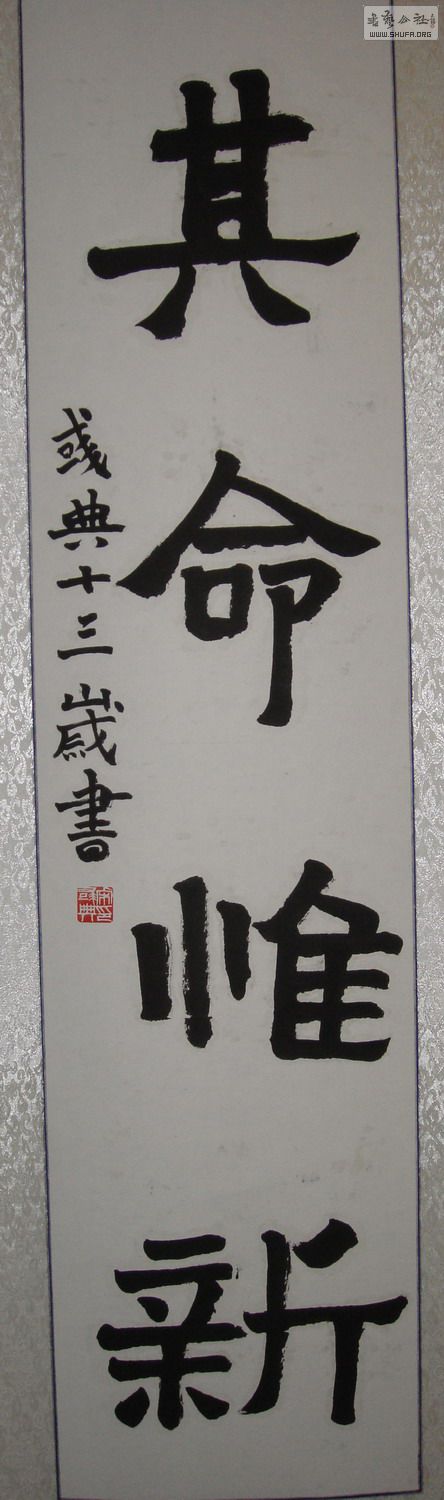 其命惟新
彧典十三歲書
書藝公社
WWW.SHUFA.ORG